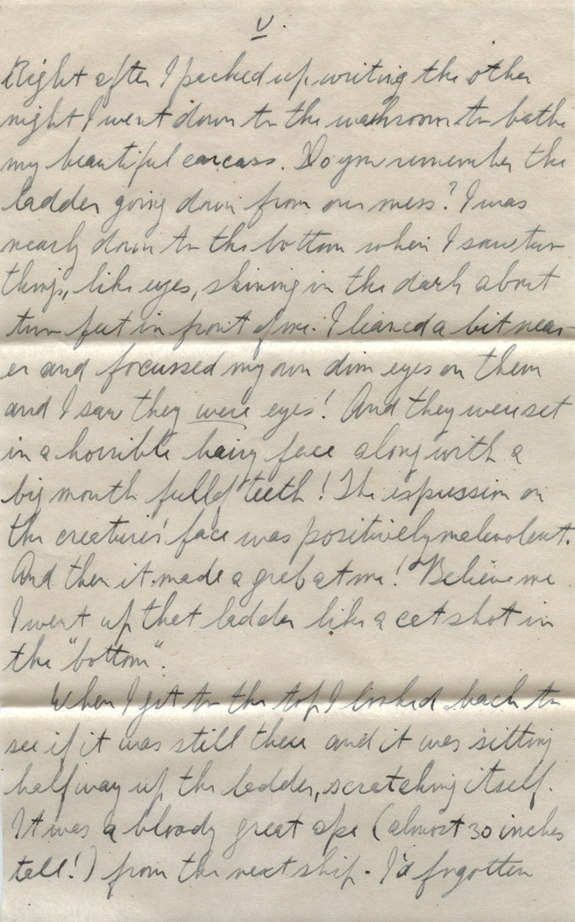 V.
Right after I packed up writing the other
night I went down to the washroom to bathe
my beautiful carcass. Do you remember the
ladder going down from our mess? I was
nearly down to the bottom when I saw two
things, like eyes, shining in the dark about
two feet in front of me. I leaned a bit near-
er and focussed my own dim eyes on them
and I saw they were eyes! And they were set
in a horrible hairy face along with a
big mouth full of teeth! The expression on
the creatures' face was positively malevolent.
And then it made a grab at me! Believe me
I went up that ladder like a cat shot in
the "bottom".
When I got to the top I looked back to
see if it was still there and it was sitting
halfway up the ladder, scratching itself.
It was a bloody great ape (almost 30 inches
tall!) from the next ship. I'd forgotten